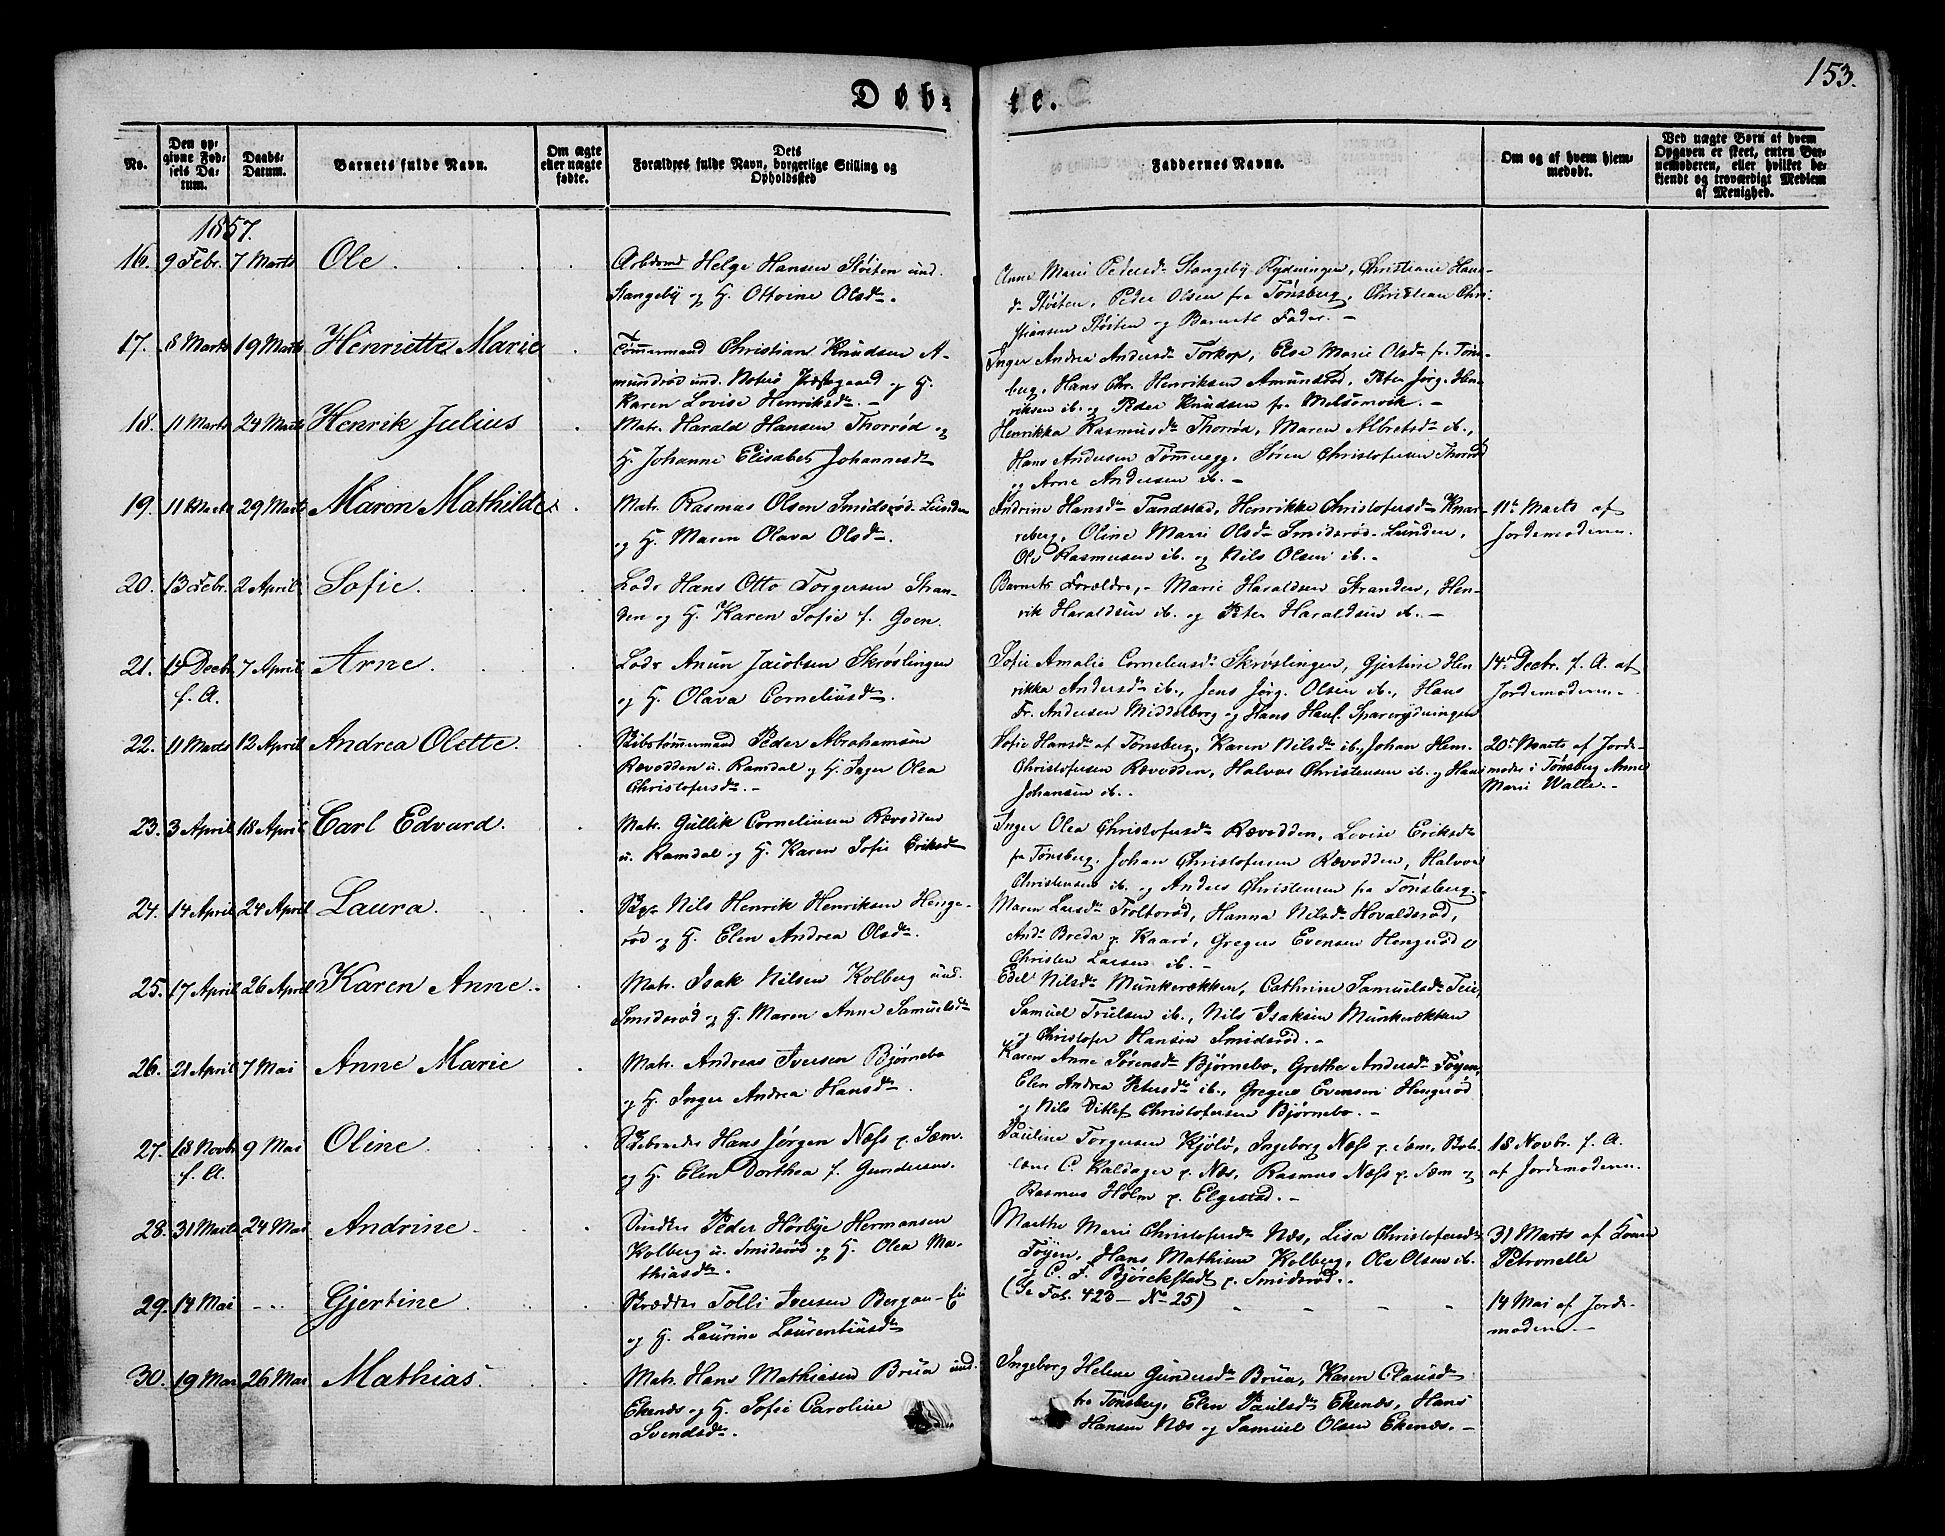 153.
Døbte.
No.
Den opgivne Fødsels Datum.
Daabs-Datum.
Barnets fulde Navn.
Om ægte eller uægte fødte.
Dets Forældres fulde Navn, borgerlige Stilling og Opholdssted
Faddernes Navne.
Om og af hvem hjemmedøbt.
Ved uægte Børn af hvem Opgaven er skeet, enten Barnemoderen, eller hvilket bekjendt og troværdigt Medlem af Menighed.
1857.
16. 9 Febr. 7 Marts Ole.
Arbdsmd Helge Hansen Støiten und.
Stangeby og H. Ottvine Olsdr.
Anne Marie Pedersdr Stangeby Rydningen, Christiane Hans-
dr Støiten, Peder Olsen fra Tønsberg, Christian Chri-
stiansen Støiten og Barnets Fader. -
17. 8 Marts 19 Marts Henriette Marie
Tømmermand Christian Knudsen A-
mundrød und. Præstegaard og H.
Karen Lovise Henriksdr. -
Inger Andrea Andersdr Torkop, Else Marie Olsdr fr. Tøns-
berg, Hans Chr. Henriksen Amundrød, Peter Jørg. Hen-
riksen ib. og Peder Knudsen fra Melsomvik. -
18. 11 Marts 24 Marts Henrik Julius
Matr. Harald Hansen Thorrød og
H. Johanne Elisabet Johannesdr
Henrikka Rasmusdr Thorrød, Maren Albretsdr ib.,
Hans Andersen Tømmeregg, Søren Christofersen Thorrød
og Arne Andersen ib. -
19. 11 Marts 29 Marts Maren Mathilde.
Matr. Rasmus Olsen Smidsrød-Lunden
og H. Maren Olava Olsdr.
Andrine Hansdr Tandstad, Henrikke Christofersdr Knar-
reberg, Oline Marie Olsdr Smidsrød-Lunden,
Ole Rasmussen ib. og Nils Olsen ib. -
11te Marts af
Jordemoderen.
20. 13 Febr. 2 April Sofie.
Lods Hans Otto Torgersen Stran-
den og H. Karen Sofie f. Goen.
Barnets Forældre, - Marie Haraldsen Stranden, Hen-
rik Haraldsen ib. og Peter Haraldsen ib. -
21. 14 Decbr. 7 April Arne.
f. A.
Lods Anun Jacobsen Skrøslingen
og H. Olava Corneliusdr.
Sofie Amalie Corneliusdr Skrøslingen, Gjertine Hen-
rikka Andersdr ib., Jens Jørg. Olsen ib., Hans
Fr. Andersen Middelborg og Hans Hans. Sparerydningen
14de Decbr. f. A. af
Jordemoderen.
22. 11 Marts 12 April Andrea Olette.
Skibstømermand Peder Abrahamsen
Rævodden u. Ramdal og H. Inger Olea
Christofersdr. -
Sofie Hansdr af Tønsberg, Karen Nilsdr ib., Johan Hem.
Christofersen Rævodden, Halvor Christensen ib. og Hans
Johansen ib. -
20de Marts af Jorde-
moder i Tønsberg Anne
Marie Walle. -
23. 3 April 18 April Carl Edvard.
Matr. Gullik Corneliusen Rævodden
u. Ramdal og H. Karen Sofie Eriksdr
Inger Olea Christofersdr Rævodden, Lovise Eriksdr
fr. Tønsberg, Johan Christofersen Rævodden, Halvor
Christensen ib. og Anders Christensen fra Tønsberg. -
24. 14 April 24 April Laura.
Nils Henrik Henriksen Henge-
rød og H. Elen Andrea Olsdr.
Maren Larsdr Troltorød, Hanna Nilsdr Hovaldsrød,
Andr. Breda p. Kaarø, Gregers Evensen Hengerød og
Christen Larsen ib. -
25. 17 April 26 April Karen Anne.
Matr. Isak Nilsen Kolberg und.
Smidsrød og H. Maren Anne Samuelsdr
Edel Nilsdr Munkerækken, Cathrine Samuelsdr Teie,
Samuel Trulsen ib., Nils Isaksen Munkerækken
og Christofer Hansen Smidsrød. -
26. 21 April 7 Mai Anne Marie
Matr. Andreas Iversen Bjørnebo
og H. Inger Andrea Hansdr.
Karen Anne Sørensdr Bjørnebo, Grethe Andersdr Føyen,
Elen Andrea Petersdr ib., Gregers Evensen Hengerød
og Nils Ditlef Christofersen Bjørnebo. -
27. 18 Novbr. 9 Mai Oline.
f. A.
Skibsreder Hans Jørgen Næss p. Sæm.
og H. Elen Dorthea f. Gundersen.
Pauline Torgersen Kjølø, Ingeborg Næss p. Sæm,
C. Kaldager p. Næs, Rasmus Næss p. Sæm og
Rasmus Holm p. Elgestad. -
18 Novbr. f. A.
af Jordemoderen.
28. 31 Marts 24 Mai Andrine
Snedker Peder Hørbye Hermansen
Kolberg u. Smidsrød og H. Olea Ma-
thiasdr.
Marthe Marie Christofersdr Næs, Lisa Christofersdr
Føyen, Hans Mathisen Kolberg, Ole Olsen ib.
og C. F. Bjørckstedt p. Smidsrød. -
31 Marts af
Petronelle
29. 14 Mai - . . Gjertine
Skrædder Tolli Iversen Bergan-Ei
og H. Laurine Laurentiusdr
(Se Fol. 423 - No 25)
14 Mai af Jorde-
moderen. -
30. 19 Mai 26 Mai Mathias.
Matr. Hans Mathiasen Brua und.
Ekenæs og H. Sofie Caroline
Svendsdr.
Ingeborg Helene Gundersdr Brua, Karen Clausdr
fra Tønsberg, Elen Paulsdr Ekenæs, Hans
Hansen Næs og Samuel Olsen Ekenæs. -